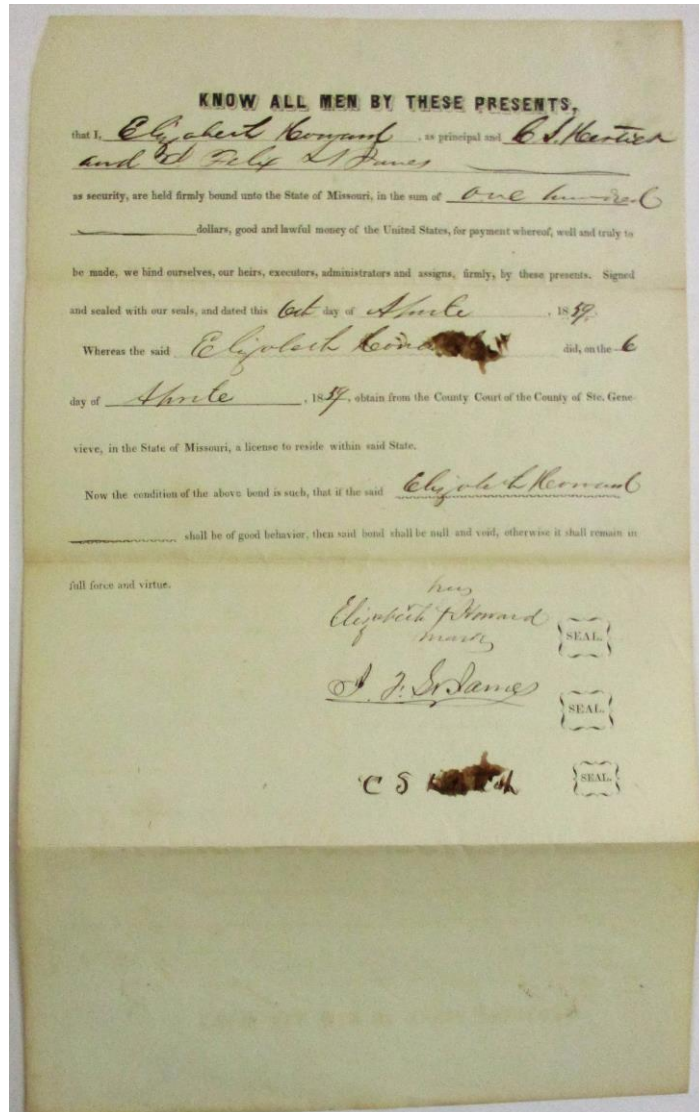 KNOW ALL MEN BY THESE PRESENTS,
that I, Elizabert Howard, as principal and C. S. Hertich
and Felix St James
as security, are held firmly bound unto the State of Missouri, in the sum of one hundred
dollars, good and lawful money of the United States, for payment whereof, well and truly to
be made, we bind ourselves, our heirs, executors, administrators and assigns, firmly, by these presents. Signed
and sealed with our seals, and dated this 6th day of Aprile, 1859.
Whereas the said Elizabeth did, on the 6
day of Aprile, 1859, obtain from the County Court of the County of Ste. Gene-
vieve, in the State of Missouri, a license to reside within said State.
Now the condition of the above bond is such, that if the said Elizabeth Howard
shall be of good behavior, then said bond shall be null and void, otherwise it shall remain in
full force and virtue.
her
Elizabeth + Howard SEAL.
mark
J. F. St James SEAL.
C S SEAL.